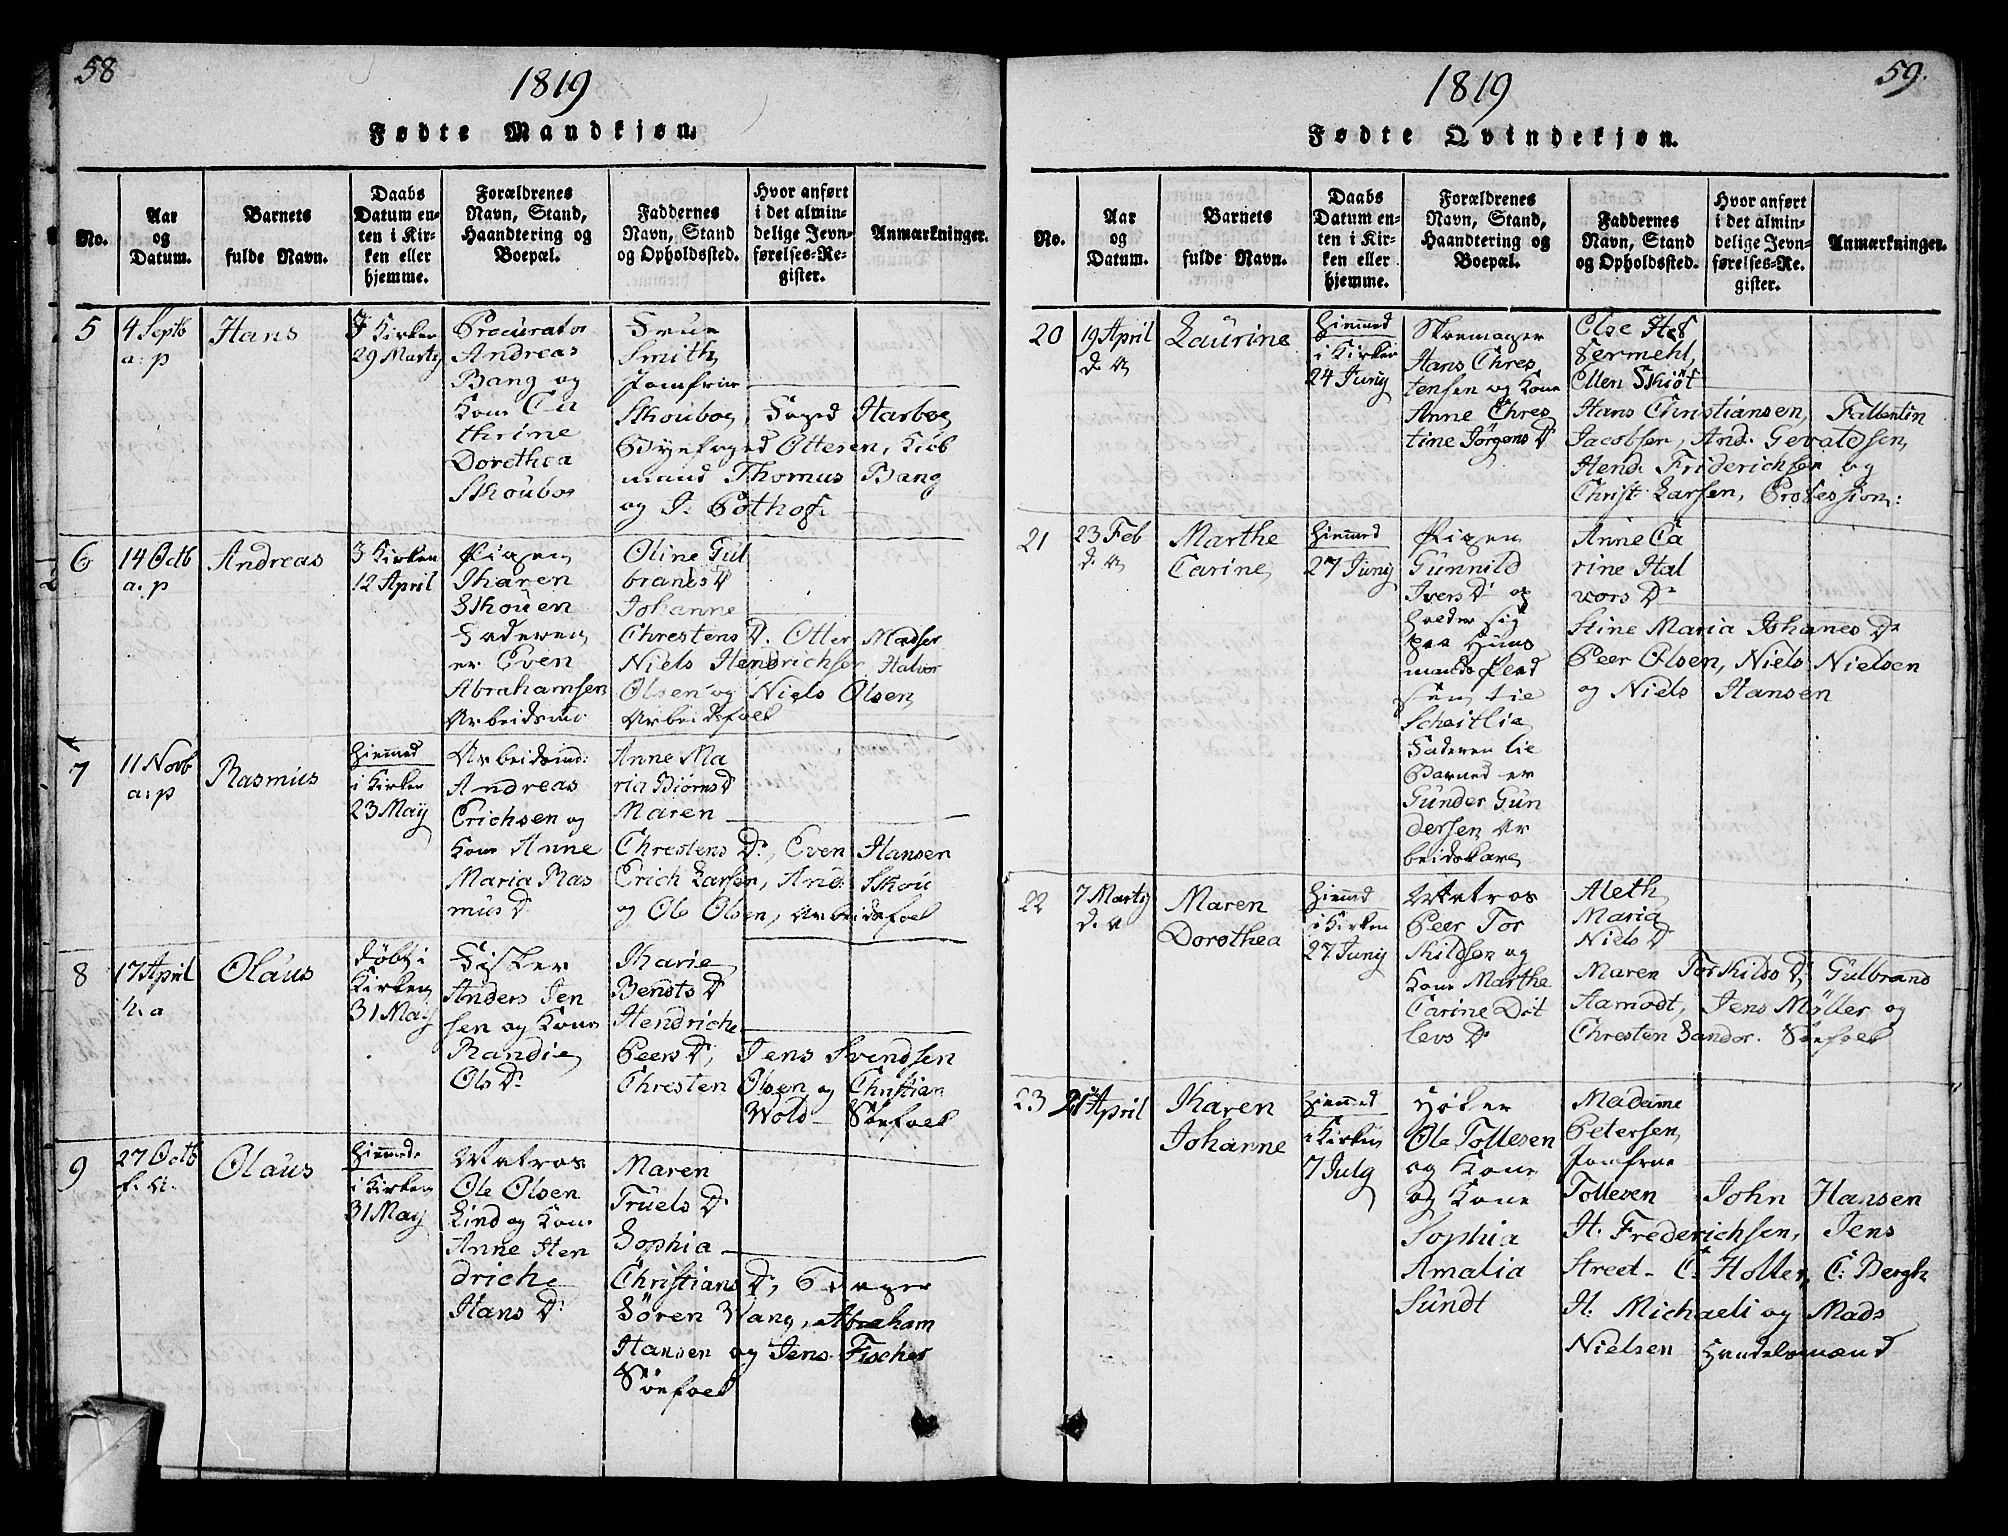 58
1819
Fødte Mandkjøn.
No.
Aar
og
Datum.
Barnets
fulde Navn.
Daabs
Datum en-
ten i Kir-
ken eller
hjemme.
Forældrenes
Navn, Stand,
Haandtering og
Boepæl.
Faddernes
Navn, Stand
og Opholdssted.
Hvor anført
i det almin-
delige Jevn-
førelses-Re-
gister.
Anmærkninger.
5
4 Septb
a: p
Hans
I Kirken
29 Marty
Procurator
Andreas
Bang og
Kone Ca
thrine
Dorothea
Skouboe
Frue
Smith,
Jomfrue
Skouboe, Foged Harboe,
Byefoged Ottesen, Kiöb
mand Thomas Bang
og J. Pothof.
6
14 Octb
a: p
Andreas
I Kirken
12 April
Pigen
Karen
Skouen
Faderen
er Even
Abrahamsen
Arbeidsmd.
Oline Gul
brandsD
Johanne
ChrestensD. Otter Madsen
Niels Hendrichsen Halvor
Olsen og Niels Olsen,
Arbeidsfolk
7
11 Novb
a: p
Rasmus
Hiemmed
i Kirken
23 May
Arbeidsmd:
Andreas
Erichsen og
Kone Anne
Maria Ras
musD
Anne Ma
ria BiörnsD
Maren
ChrestensD., Even Hansen
Erich Larsen, And: Skou
og Ole Olsen, Arbeidsfolk
8
17 April
h. a
Olaus
döbt i
Kirken
31 May
Fisker
Anders Jen
sen og Kone
Randie
OlsD.
Marie
BentsD
Hendriche
PeersD, Jens Svendsen
Chresten Olsen og Christian
Wold - Söefolk
9
27 Octb
f. A.
Olaus
Hiemmed.
i Kirken
31 May
Matros
Ole Olsen
Lind og Kone
Anne Hen
driche
HansD.
Maren
TruelsD
Sophia
ChristiansD,
Sören Wang, Abraham
Hansen og Jens Fischer
Söefolk
1819
59.
Fødte Qvindekjøn.
No.
Aar
og
Datum.
Barnets
fulde Navn.
Daabs
Datum en-
ten i Kir-
ken eller
hjemme.
Forældrenes
Navn, Stand,
Haandtering og
Boepæl.
Faddernes
Navn, Stand
og Opholdssted.
Hvor anført
i det almin-
delige Jevn-
førelses-Re-
gister.
Anmærkninger.
20
19 April
d. A
Laurine
Hiemmed
i Kirken
24 Juny
Skoemager
Hans Chres
tensen og Kone
Anne Chres
tine JörgensD
Else
Fermehl,
Ellen Skiöt
Hans Christiansen, Fallentin
Jacobsen, And. Gevaldsen,
Hend. Friderichsen og
Christ. Larsen, Profession:
21
23 Feb
d. A
Marthe
Carine
Hiemmed
27 Juny
Pigen
Gunnild
IversD og
holder sig
paa Huus
mands Plad
sen
Scheitlie
Faderen til
Barnet er
Gunder Gun
dersen Ar
beidskarl
Anne Ca
rine Hal
vorsD.
Stine Maria JohanesD.
Peer Olsen, Niels Nielsen
og Niels Hansen
22
7 Marty
d. A
Maren
Dorothea
Hiemmed
i Kirken
27 Juny
Matros
Peer Tor
kildsen og
Kone Marthe
Carine Dit
levsD.
Aleth
Maria
NielsD
Maren TorkildsD, Gulbrand
Aamodt, Jens Møller og
Chresten Sandor. Söefolk
23
21 April
Karen
Johanne
Hiemmed
i Kirken
7 July
Höker
Ole Tollesen
og Kone
og Kone
Sophia
Amalia
Sundt
Madame
Petersen
Jomfrue
Tollesen John Hansen
H. Frederichsen, Jens
Street - C. Holter, C: Bergh
H. Michaeli og Mads
Nielsen Handelsmænd